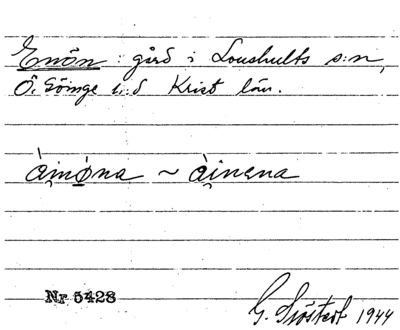 Enön : gård i Loushults s:n,
Ö. Göinge h:d Krist län.
àı̣nǿna ~ àı̣nɛna
Nr 5428
G. Sjöstedt 1944